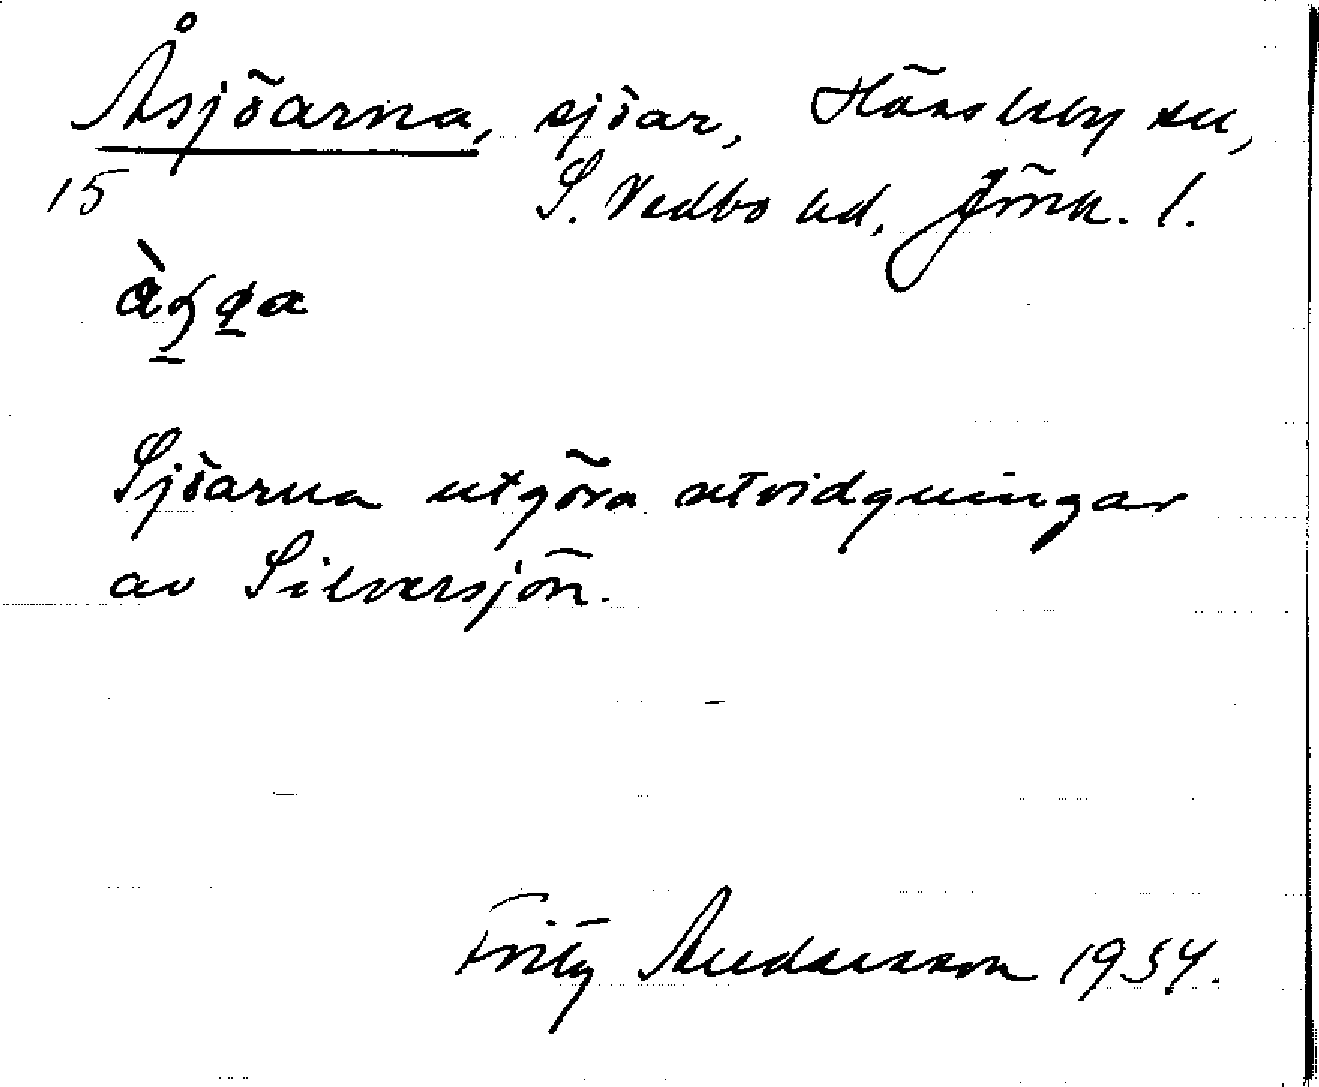 Åsjöarna, sjöar, Hässleby sn,
15 S. Vedbo hd, Jönk. l.
Sjöarna utgöra utvidgningar
av Silversjön.
Fritz Andersson 1934.